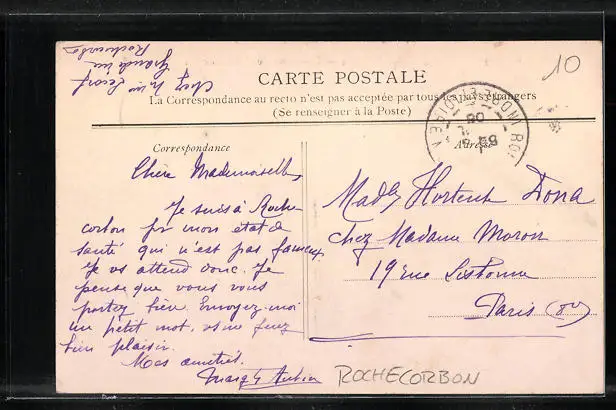 chez Mme
Grande rue
Rochecorbon
10
CARTE POSTALE
La Correspondance au recto n'est pas acceptée par tous les pays étrangers
(Se renseigner à la Poste)
Correspondance
Adresse
Chère Mademoiselle,
Je suis à Roche
corbon pr mon état de
santé qui n'est pas fameux
Je vs attend donc. Je
pense que vous vous
portez bien. Envoyez-moi
un petit mot, vs me ferez
bien plaisir.
Mes amitiés.
Madle Hortense Dona
chez Madame Moron
19 rue Lisbonne
Paris
ROCHECORBON